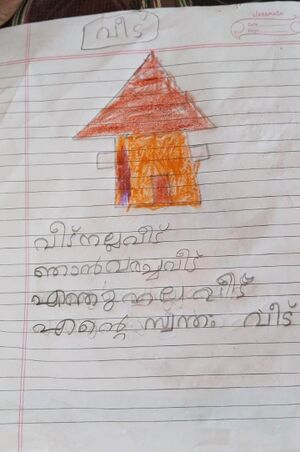 classmate
Date
Page
വീട്
വീട് നല്ല വീട്
ഞാൻ വരച്ച വീട്
എന്തു നല്ല വീട്
എന്റെ സ്വന്തം വീട്